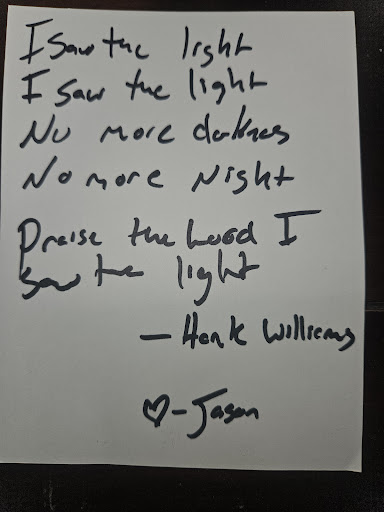 I saw the light
I saw the light
No more darkness
No more Night
Praise the Lord I
saw the light
— Hank Williams
♡ - Jason